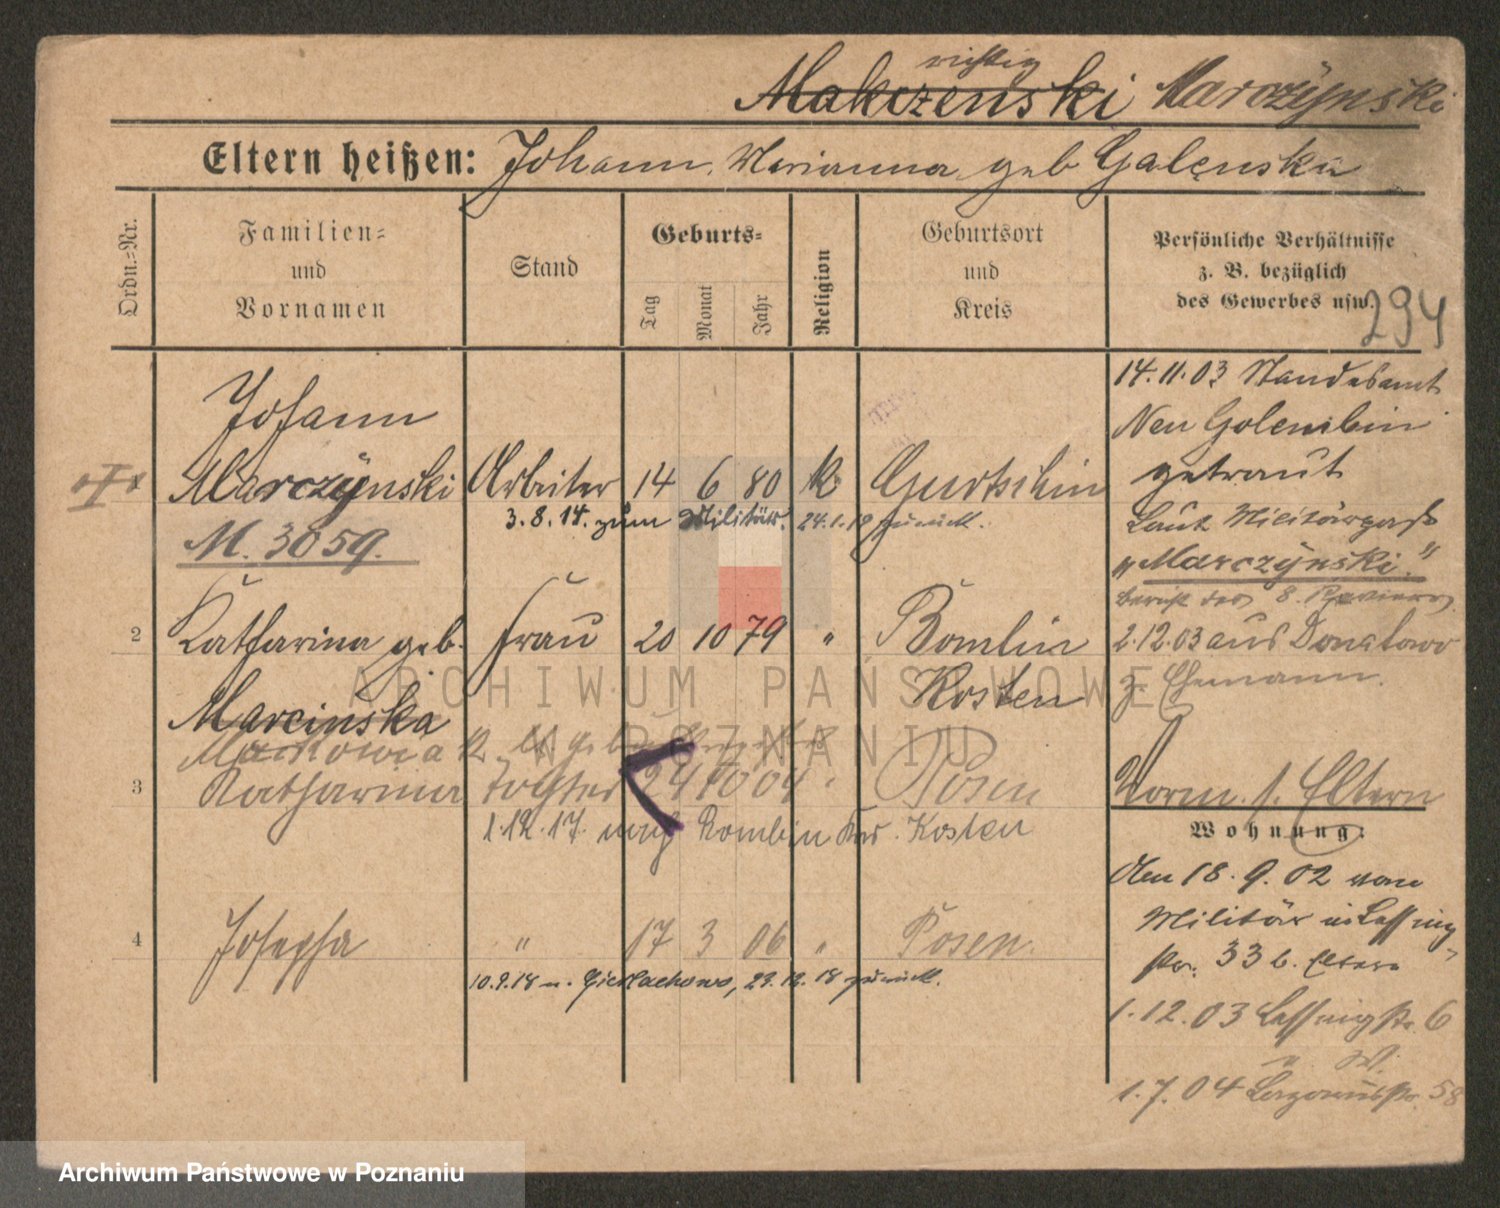 richtig
Makczenski Marcżynski
Eltern heißen: Johann, Marianna geb Galenska
Ordn.-Nr.
Familien= und Vornamen
Stand
Geburts=
Tag
Monat
Jahr
Religion
Geburtsort und Kreis
Persönliche Verhältnisse
z. B. bezüglich
des Gewerbes usw.
294
Johann
Marczÿnski Arbeiter 14 6 80 k Gurtschin
3.8.14. zum Militär. 24.1.19 zurück.
M. 3059.
2 Katharina geb. Frau 20 10 79 " Bomlin
Kosten
Marcinska
Katharina Tochter 24 10 04 " Posen
3
1.12.17. nach Rombin Krs. Kosten
4 Josepha " 17 3 06 " Posen.
10.9.18 n. 23.12.18 zurück.
14.11.03 Standesamt
Neu Golembin
getraut
Laut Militärpaß
"Marczÿnski."
Bericht des 8. Reviers
2.12.03 aus Donatowo
z. Ehemann.
Vorm. s. Eltern
Wohnung:
Den 18.9.02 vom
Militär in Lessing
str. 33 b. Eltern
1.12.03 Lessingstr. 6
1.7.04 58
ARCHIWUM PAŃSTWOWE
W POZNANIU
Archiwum Państwowe w Poznaniu